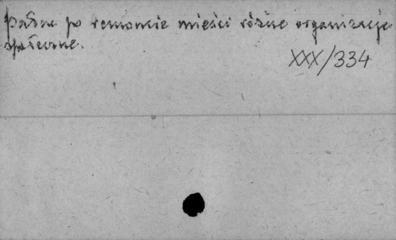 Pałac po remoncie mieści różne organizacje
społeczne.
XXX/334